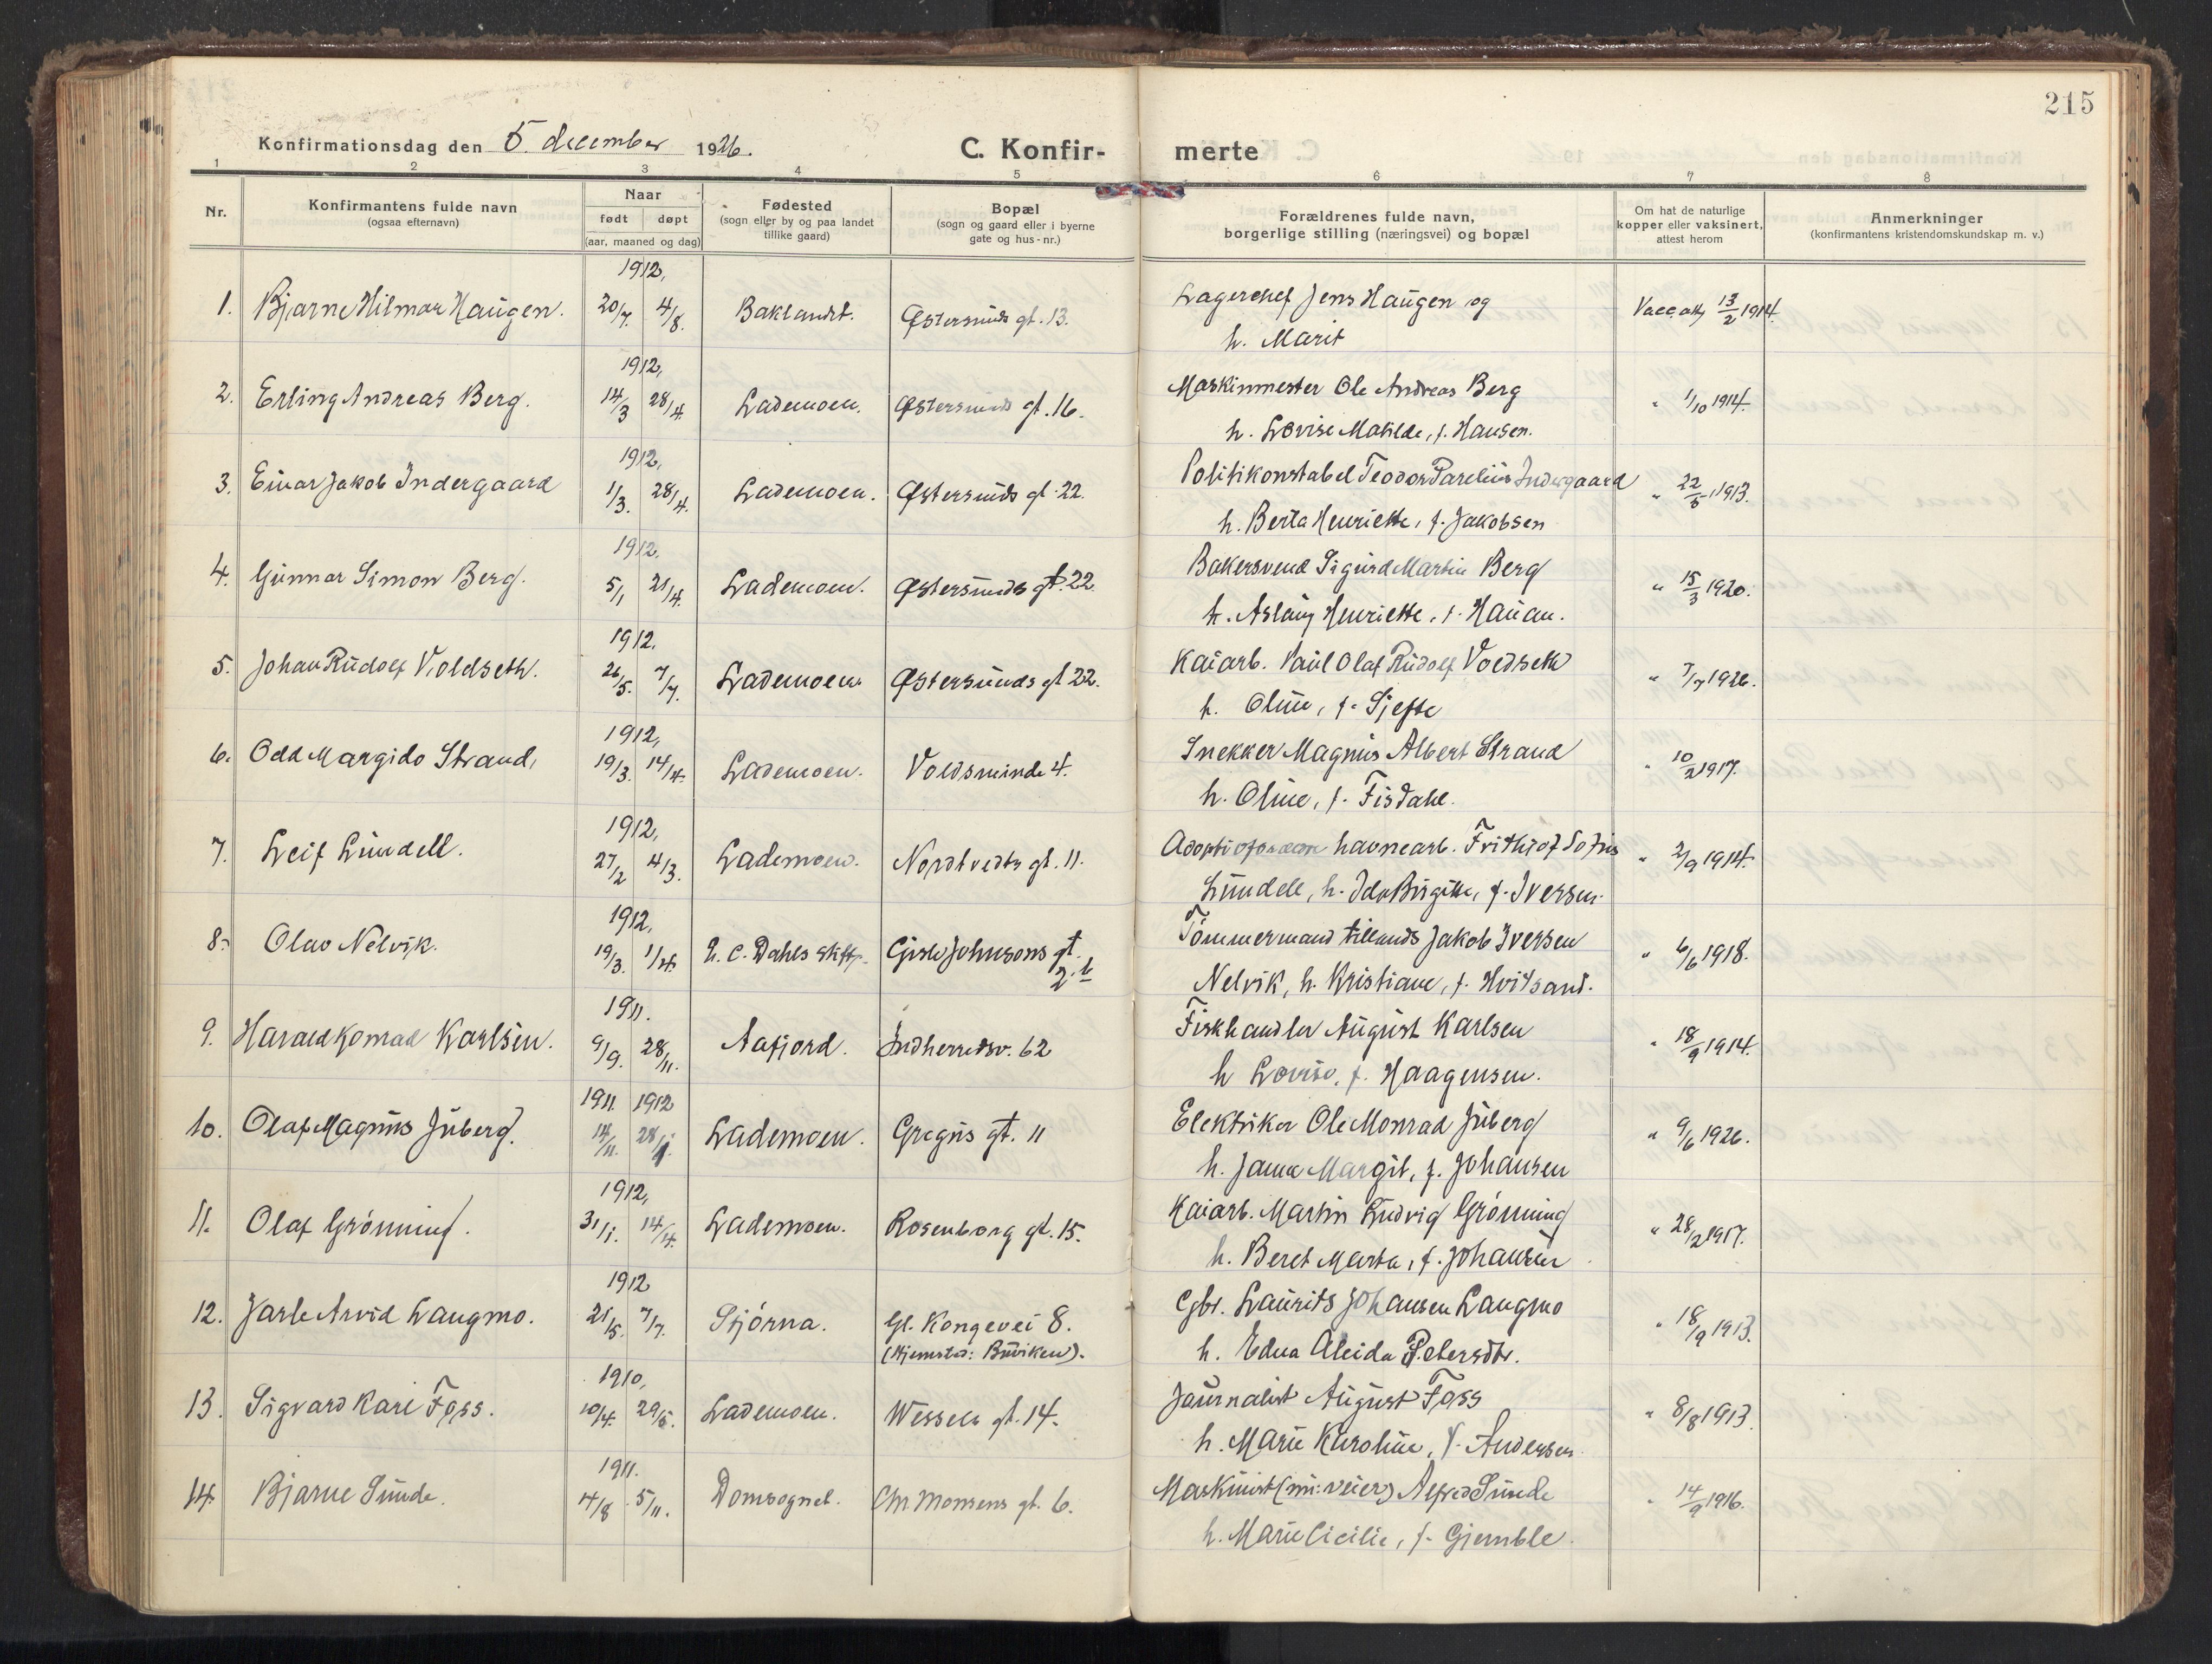 215
Konfirmationsdag den 5. december 1926.
C. Konfir- merte
1 2 3 4 5 6 7 8
Nr.
Konfirmantens fulde navn
(ogsaa efternavn)
Naar
født døpt
(aar, maaned og dag)
Fødested
(sogn eller by og paa landet
tillike gaard)
Bopæl
(sogn og gaard eller i byerne
gate og hus-nr.)
Forældrenes fulde navn,
borgerlige stilling (næringsvei) og bopæl
Om hat de naturlige
kopper eller vaksinert,
attest herom
Anmerkninger
(konfirmantens kristendomskundskap m. v.)
1912,
1. Bjarne Hilmar Haugen. 20/7. 4/8. Baklandet. Østersunds gt. 13. Lagerchef Jens Haugen og Vacc. att. 13/2 1914.
h. Marit
1912,
2. Erling Andreas Berg. 14/3 28/4. Lademoen. Østersunds gt. 16. Maskinmester Ole Andreas Berg " 1/10 1914.
h. Lovise Mathilde, f. Hansen.
1912,
3. Einar Jakob Indergaard 1/3. 28/4. Lademoen. Østersunds gt. 22. Politikonstabel Teodor Parelius Indergaard " 22/5 1913.
h. Berta Henriette, f. Jakobsen
1912,
4. Gunnar Simon Berg. 5/1 21/4. Lademoen. Østersunds gt. 22. Bakersvend Sigurd Martin Berg " 15/3 1920.
h. Aslaug Henriette, f. Hauan.
1912.
5. Johan Rudolf Voldseth. 26/5. 7/7. Lademoen. Østersunds gt 22. Kaiarb. Paul Olaf Rudolf Voldseth " 7/7 1926.
h. Oline, f. Sjefte
1912,
6. Odd Margido Strand, 19/3. 14/4. Lademoen. Voldsminde 4. Snekker Magnus Albert Strand " 10/2 1917.
h. Oline, f. Fisdahl.
1912,
7. Leif Lundell. 27/2 4/3. Lademoen. Nordtvedts gt. 11. havnearb. Frithiof Sofus " 2/9 1914.
Lundell, h. Ida Birgitte, f. Iversen.
1912,
8. Olav Nelvik. 19/3. 1/4. E. C. Dahls stift. Gisle Johnsons gt. Tømmermand tillands Jakob Iversen " 6/6 1918.
2.b Nelvik, h. Kristiane, f. Hvitsand.
1911.
9. Harald Konrad Karlsen. 9/9. 28/11. Aafjord. Indherredsv. 62 Fiskhandler August Karlsen " 18/9 1914.
h Lovise, f. Haagensen.
1911. 1912
10. Olaf Magnus Juberg. 14/11. 28/1. Lademoen. Gregus gt. 11 Elektriker Ole Monrad Juberg " 9/6 1926.
h. Janna Margit, f. Johansen
1912,
11. Olaf Grønning. 31/1. 14/4. Lademoen. Rosenborg gt. 15. Kaiarb. Martin Ludvig Grønning " 28/2 1917.
h. Beret Marta, f. Johansen
1912
12. Jarle Arvid Langmo. 21/5. 7/7. Stjørna. Gl. Kongevei 8. Gbr. Laurits Johansen Langmo " 18/9 1913.
(Hjemsted: Buviken). h. Edna Aleida Petersdtr.
1910,
13. Sigvard Karl Foss. 10/4. 29/5. Lademoen. Wessels gt. 14. Journalist August Foss " 8/8 1913.
h. Marie Karoline, f. Andersen
1911.
14. Bjarne Sunde. 4/8 5/11. Domsognet. Chr Monsens gt. 6. Maskinist (mi: veier) Alfred Sunde " 14/9 1916.
h. Marie Cicilie, f. Gjemble.